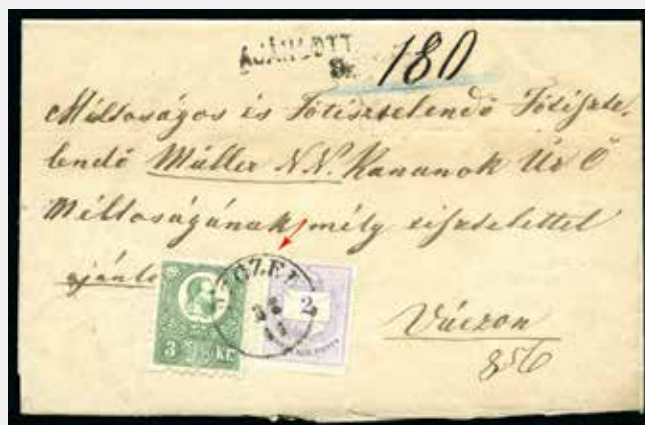 AJÁNLOTT
Nr. 180
Méltoságos és Fötisztelendö Fötiszte-
lendö Müller N.N. Kananok Úr Ö
Méltoságának mély tisztelettel
ajánlo
3 KR
2
Váczon
856